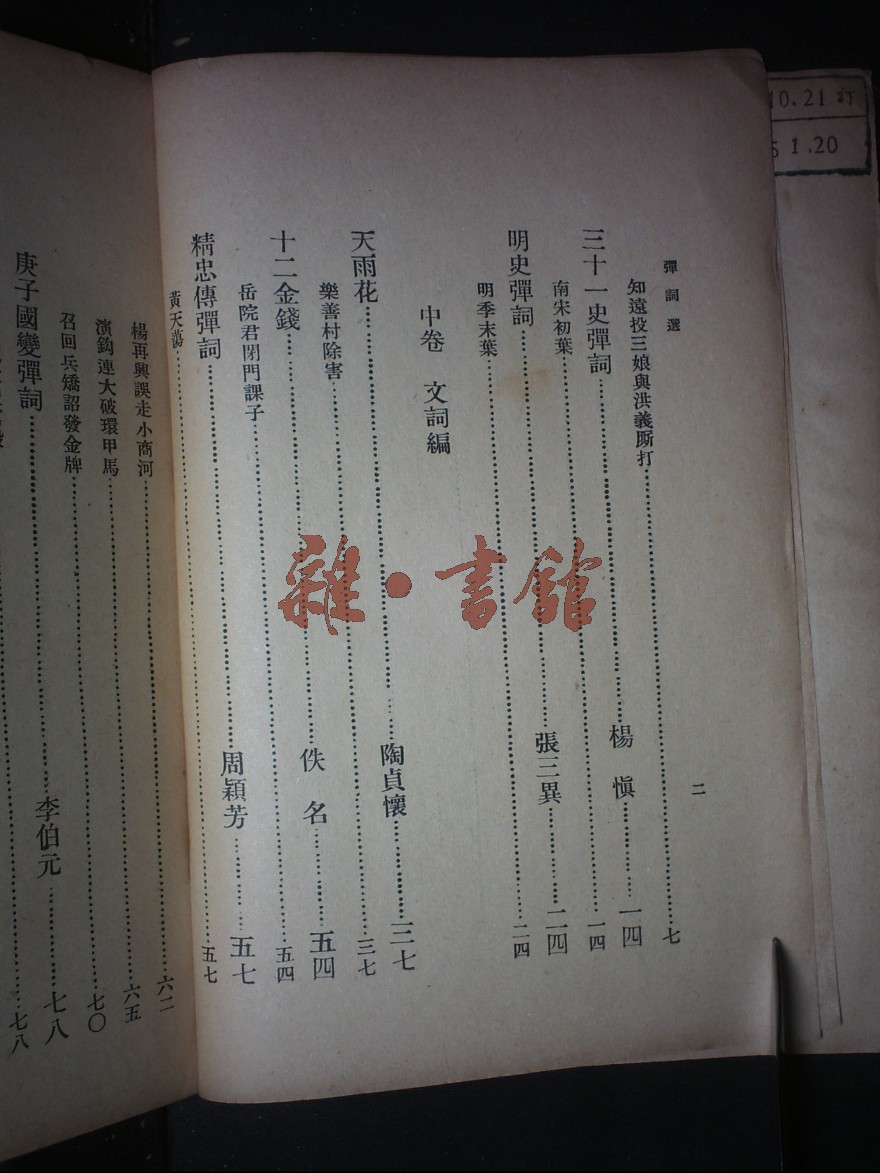 彈詞選
二
知遠投三娘與洪義厮打……七
三十一史彈詞……楊慎……一四
南宋初葉……一四
明史彈詞……張三異……二四
明季末葉……二四
中卷 文詞編
天雨花……陶貞懷……三七
樂善村除害……三七
十二金錢……佚名……五四
岳院君閉門課子……五四
精忠傳彈詞……周穎芳……五七
黃天蕩……五七
楊再興誤走小商河……六二
演鈎連大破環甲馬……六五
召回兵矯詔發金牌……七〇
庚子國變彈詞……李伯元……七八
……七八
雜·書館
10.21
1.20